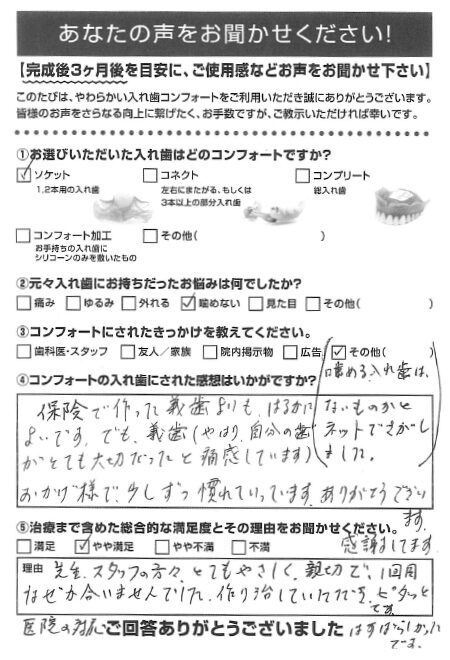 あなたの声をお聞かせください!
【完成後3ヶ月後を目安に、ご使用感などお声をお聞かせ下さい】
このたびは、やわらかい入れ歯コンフォートをご利用いただき誠にありがとうございます。
皆様のお声をさらなる向上に繋げたく、お手数ですが、ご教示いただければ幸いです。
①お選びいただいた入れ歯はどのコンフォートですか?
☑ソケット □コネクト □コンプリート
1,2本用の入れ歯 左右にまたがる、もしくは 総入れ歯
3本以上の部分入れ歯
□コンフォート加工 □その他( )
お手持ちの入れ歯に
シリコーンのみを敷いたもの
②元々入れ歯にお持ちだったお悩みは何でしたか?
□痛み □ゆるみ □外れる ☑噛めない □見た目 □その他( )
③コンフォートにされたきっかけを教えてください。
□歯科医・スタッフ □友人/家族 □院内掲示物 □広告 ☑その他( )
(噛める入れ歯は、
ないものかと
ネットでさがし
ました。)
④コンフォートの入れ歯にされた感想はいかがですか?
保険で作った義歯よりも、はるかに
よいです。でも、義歯(やはり自分の歯
がとても大切だったと痛感しています)
おかげ様で、少しずつ慣れていっています。ありがとうござい
ます。
感謝してます。
⑤治療まで含めた総合的な満足度とその理由をお聞かせください。
□満足 ☑やや満足 □やや不満 □不満
理由 先生、スタッフの方々、とてもやさしく、親切で、1回目
なぜか合いませんでした。作り治していただき、ピタッと
です。
医院の対応 はすばらしかった
です。
ご回答ありがとうございました